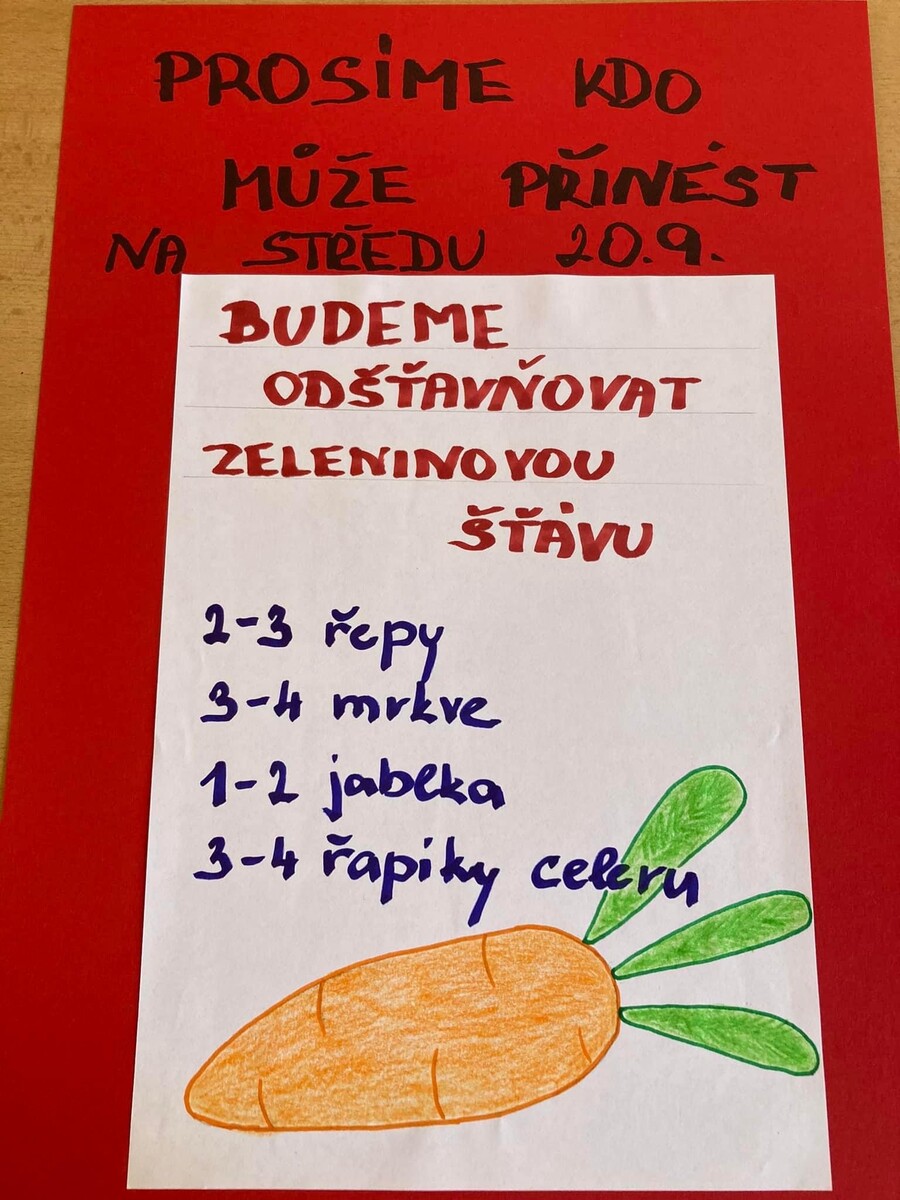 PROSÍME KDO
MŮŽE PŘINÉST
NA STŘEDU 20.9.
BUDEME
ODŠŤAVŇOVAT
ZELENINOVOU
ŠŤÁVU
2-3 řepy
3-4 mrkve
1-2 jablka
3-4 řapíky celeru